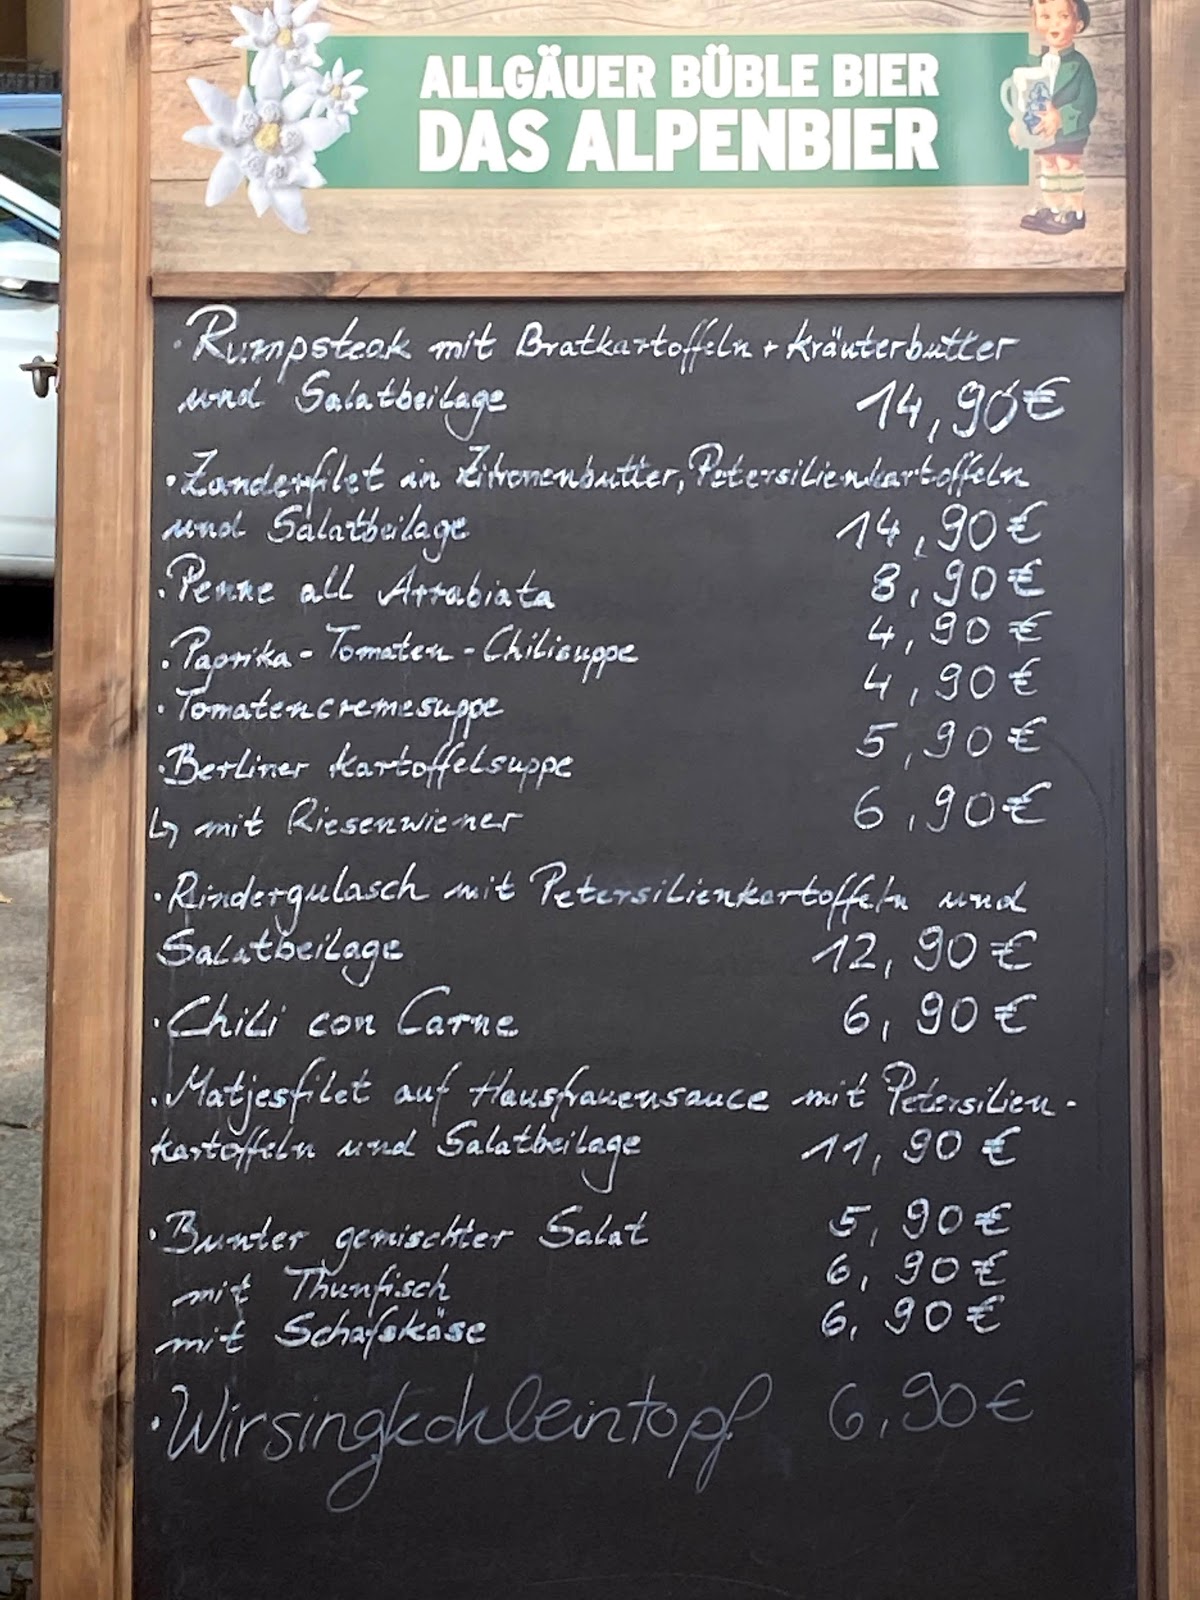 ALLGÄUER BÜBLE BIER
DAS ALPENBIER
· Rumpsteak mit Bratkartoffeln + Kräuterbutter
und Salatbeilage 14,90€
· Zanderfilet in Zitronenbutter, Petersilienkartoffeln
und Salatbeilage 14,90€
· Penne all Arrabiata 8,90€
· Paprika-Tomaten-Chilisuppe 4,90€
· Tomatencremesuppe 4,90€
· Berliner Kartoffelsuppe 5,90€
↳ mit Riesenwiener 6,90€
· Rindergulasch mit Petersilienkartoffeln und
Salatbeilage 12,90€
· Chili con Carne 6,90€
· Matjesfilet auf Hausfrauensauce mit Petersilien-
kartoffeln und Salatbeilage 11,90€
· Bunter gemischter Salat 5,90€
mit Thunfisch 6,90€
mit Schafskäse 6,90€
· Wirsingkohleintopf 6,90€